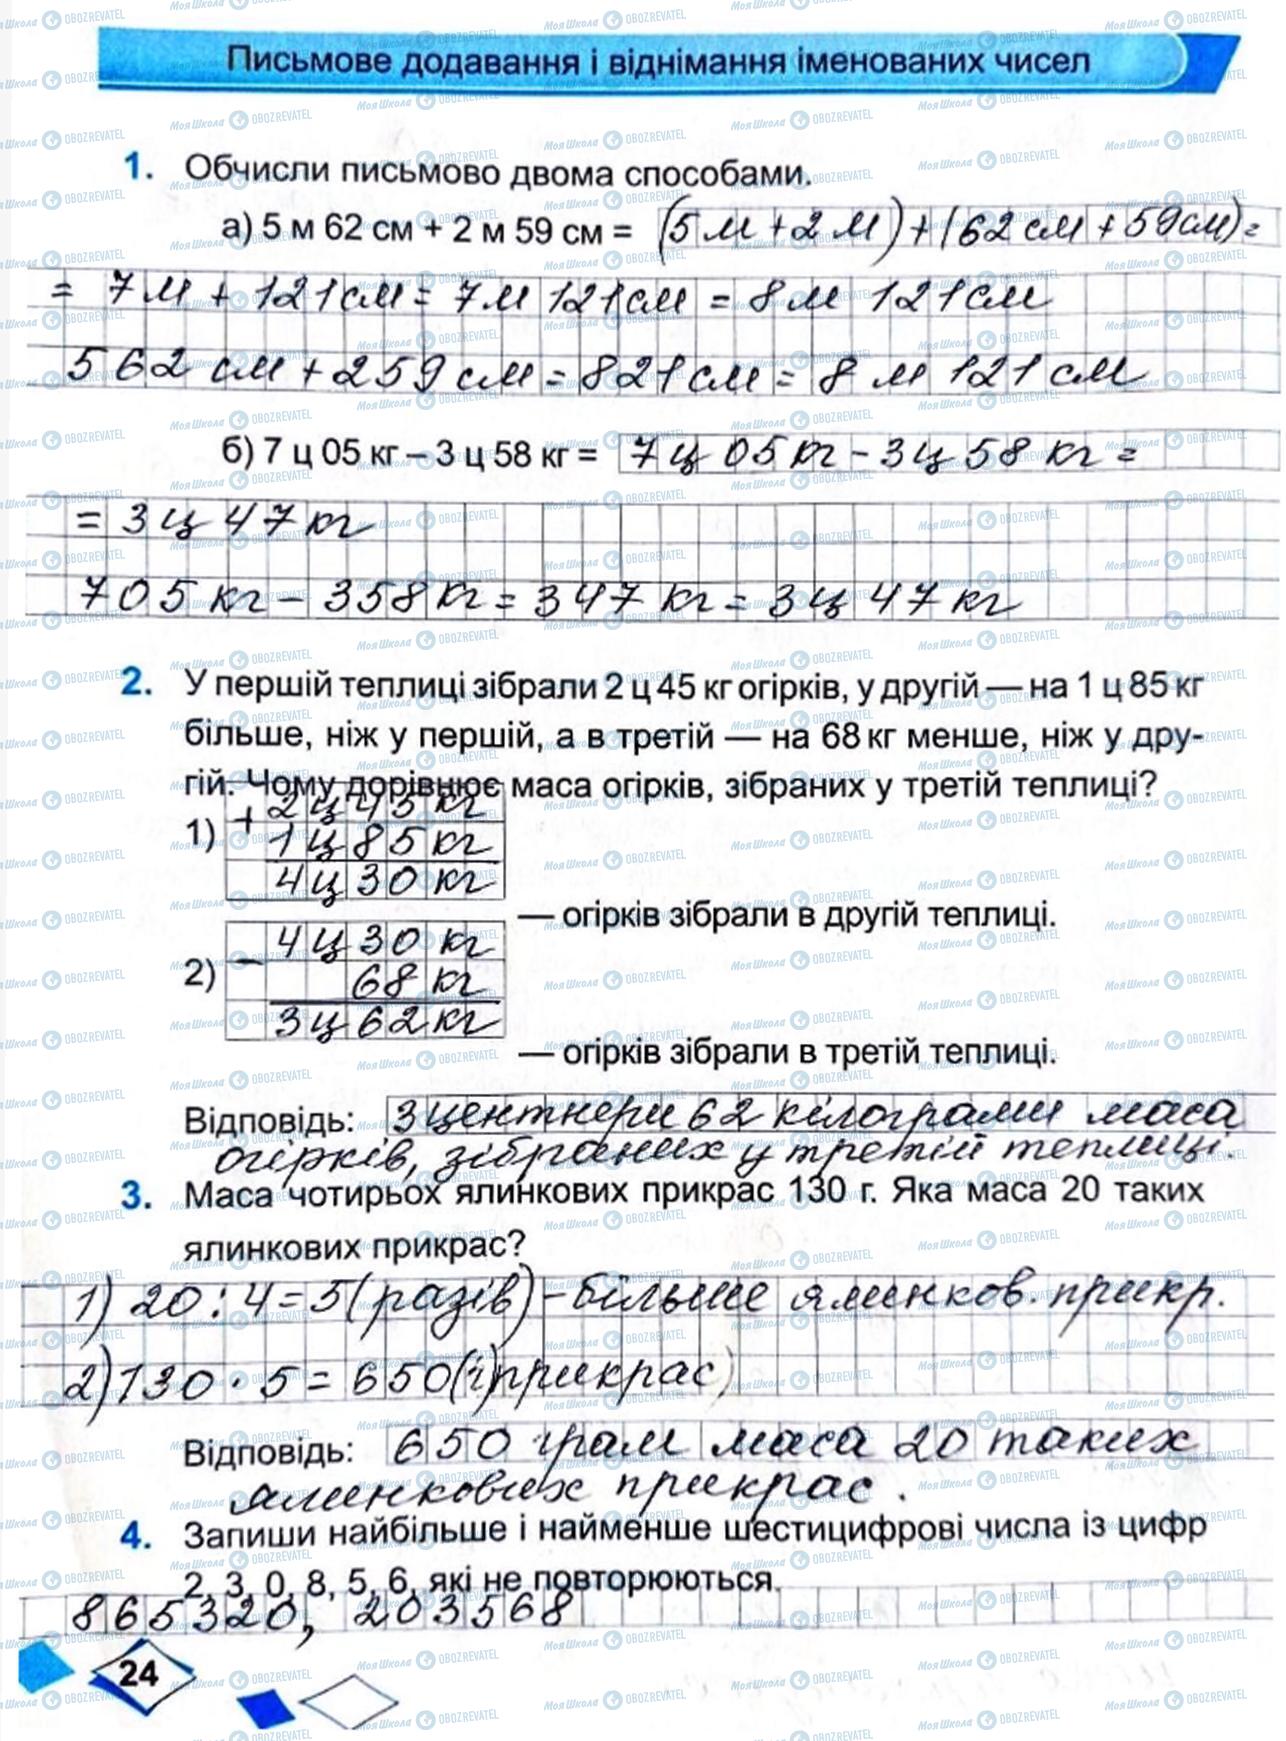 Письмове додавання і віднімання іменованих чисел
1. Обчисли письмово двома способами.
а) 5 м 62 см + 2 м 59 см = (5 м + 2 м) + (62 см + 59 см) =
= 7 м + 121 см = 7 м 121 см = 8 м 121 см
562 см + 259 см = 821 см = 8 м 121 см
б) 7 ц 05 кг – 3 ц 58 кг = 7 ц 05 кг - 3 ц 58 кг =
= 3 ц 47 кг
705 кг - 358 кг = 347 кг = 3 ц 47 кг
2. У першій теплиці зібрали 2 ц 45 кг огірків, у другій — на 1 ц 85 кг
більше, ніж у першій, а в третій — на 68 кг менше, ніж у дру-
гій. Чому дорівнює маса огірків, зібраних у третій теплиці?
1) + 2 ц 45 кг
1 ц 85 кг
4 ц 30 кг
— огірків зібрали в другій теплиці.
2) - 4 ц 30 кг
68 кг
3 ц 62 кг
— огірків зібрали в третій теплиці.
Відповідь: 3 центнери 62 кілограми маса
огірків, зібраних у третій теплиці.
3. Маса чотирьох ялинкових прикрас 130 г. Яка маса 20 таких
ялинкових прикрас?
1) 20 : 4 = 5 (разів) - більше ялинков. прикр.
2) 130 · 5 = 650 (г) прикрас)
Відповідь: 650 грам маса 20 таких
ялинкових прикрас.
4. Запиши найбільше і найменше шестицифрові числа із цифр
2, 3, 0, 8, 5, 6, які не повторюються.
865320, 203568
24
МояШкола OBOZREVATEL